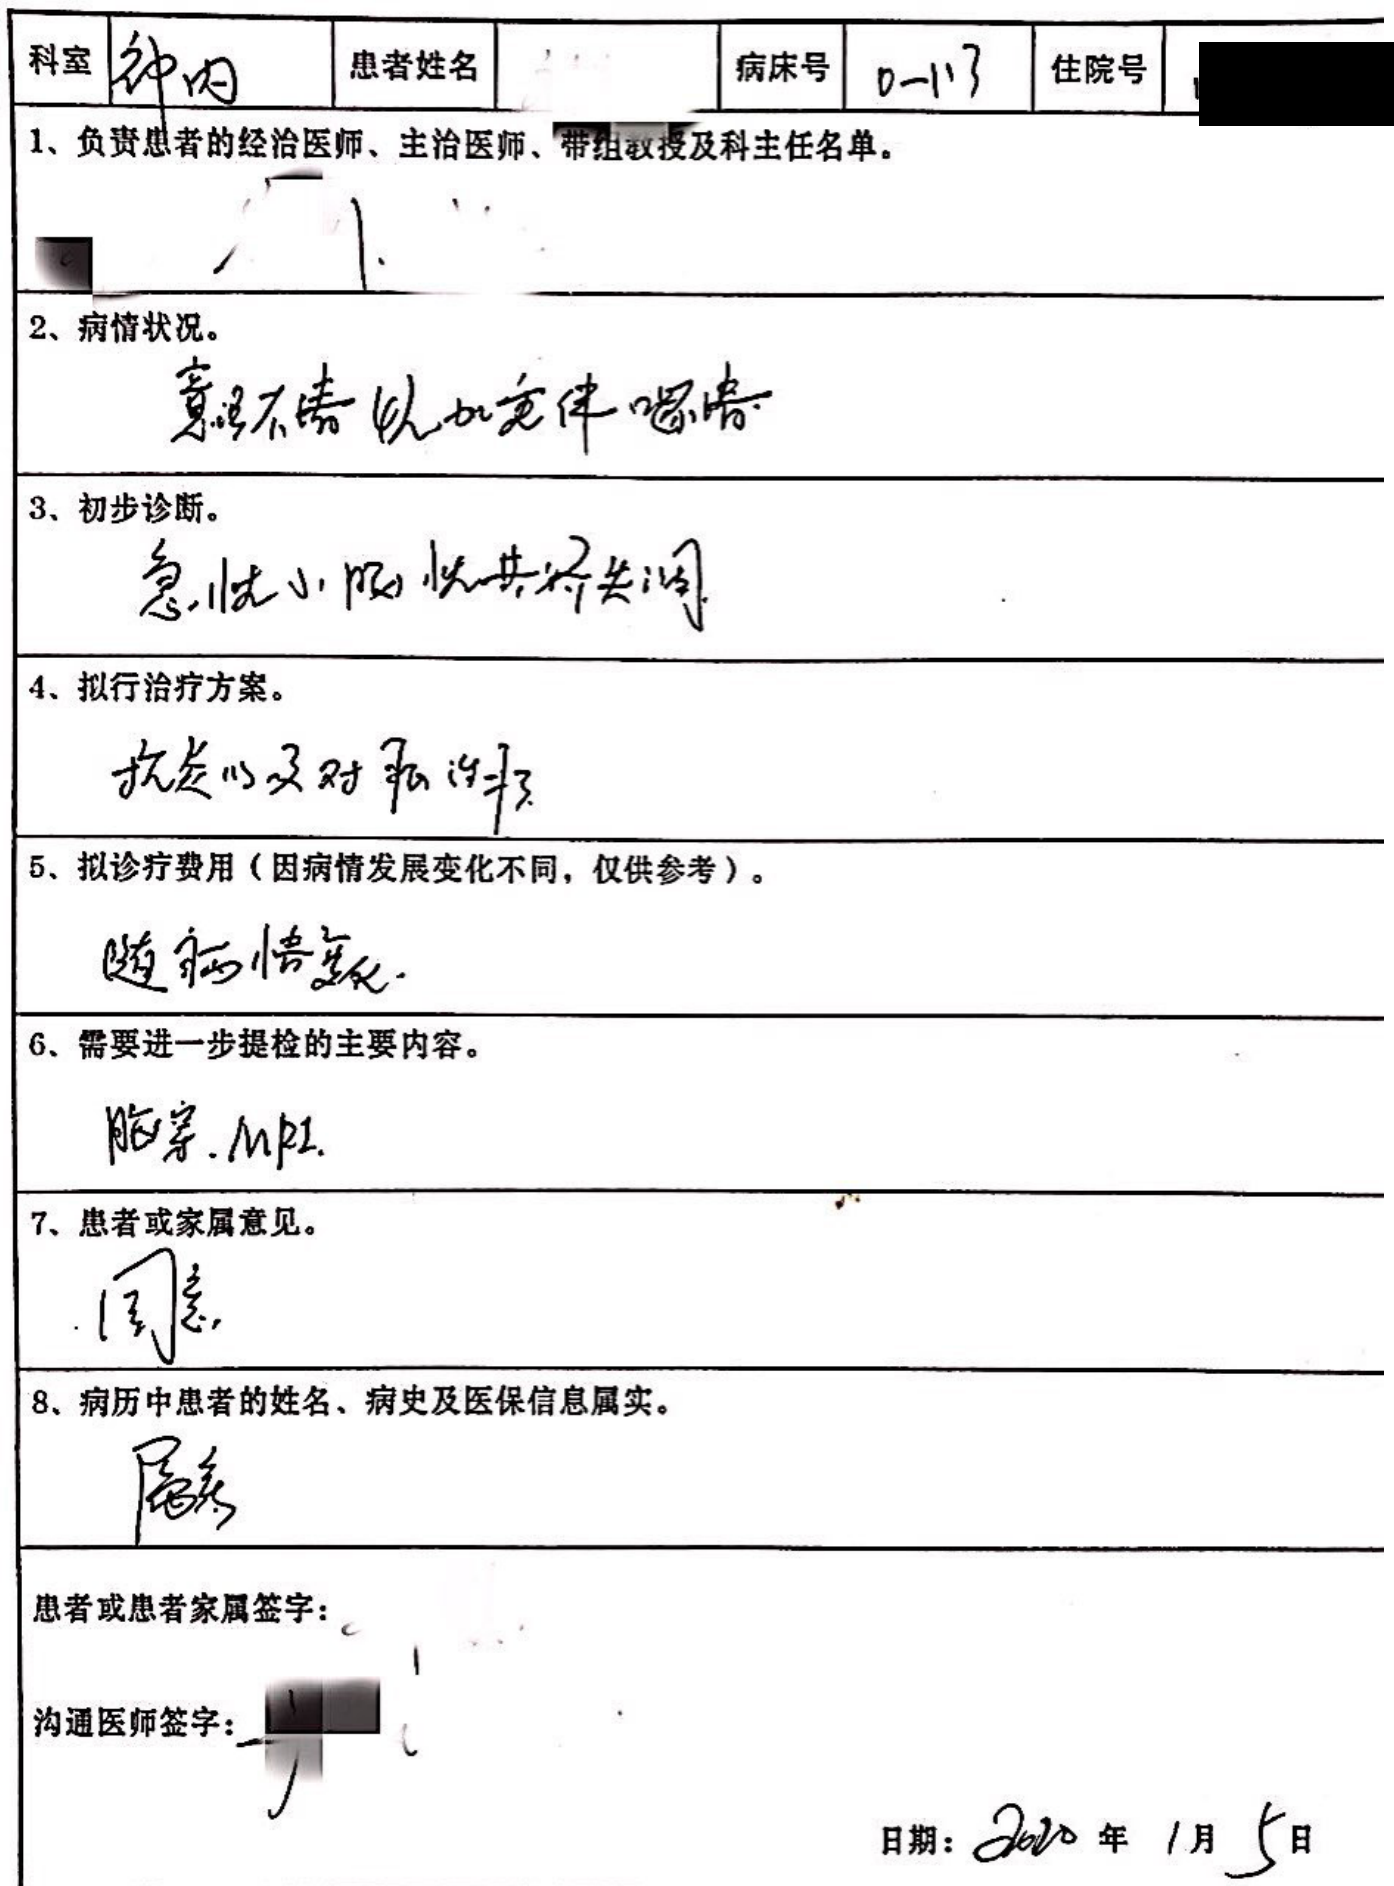 科室 神内 患者姓名 病床号 0-113 住院号
1、负责患者的经治医师、主治医师、带组教授及科主任名单。
2、病情状况。
意识不清 伴 嗜睡
3、初步诊断。
急性小脑性共济失调
4、拟行治疗方案。
抗炎以及对症治疗
5、拟诊疗费用（因病情发展变化不同，仅供参考）。
随病情变化.
6、需要进一步提检的主要内容。
MRI.
7、患者或家属意见。
同意.
8、病历中患者的姓名、病史及医保信息属实。
属实
患者或患者家属签字：
沟通医师签字：
日期：2020 年 1 月 5 日